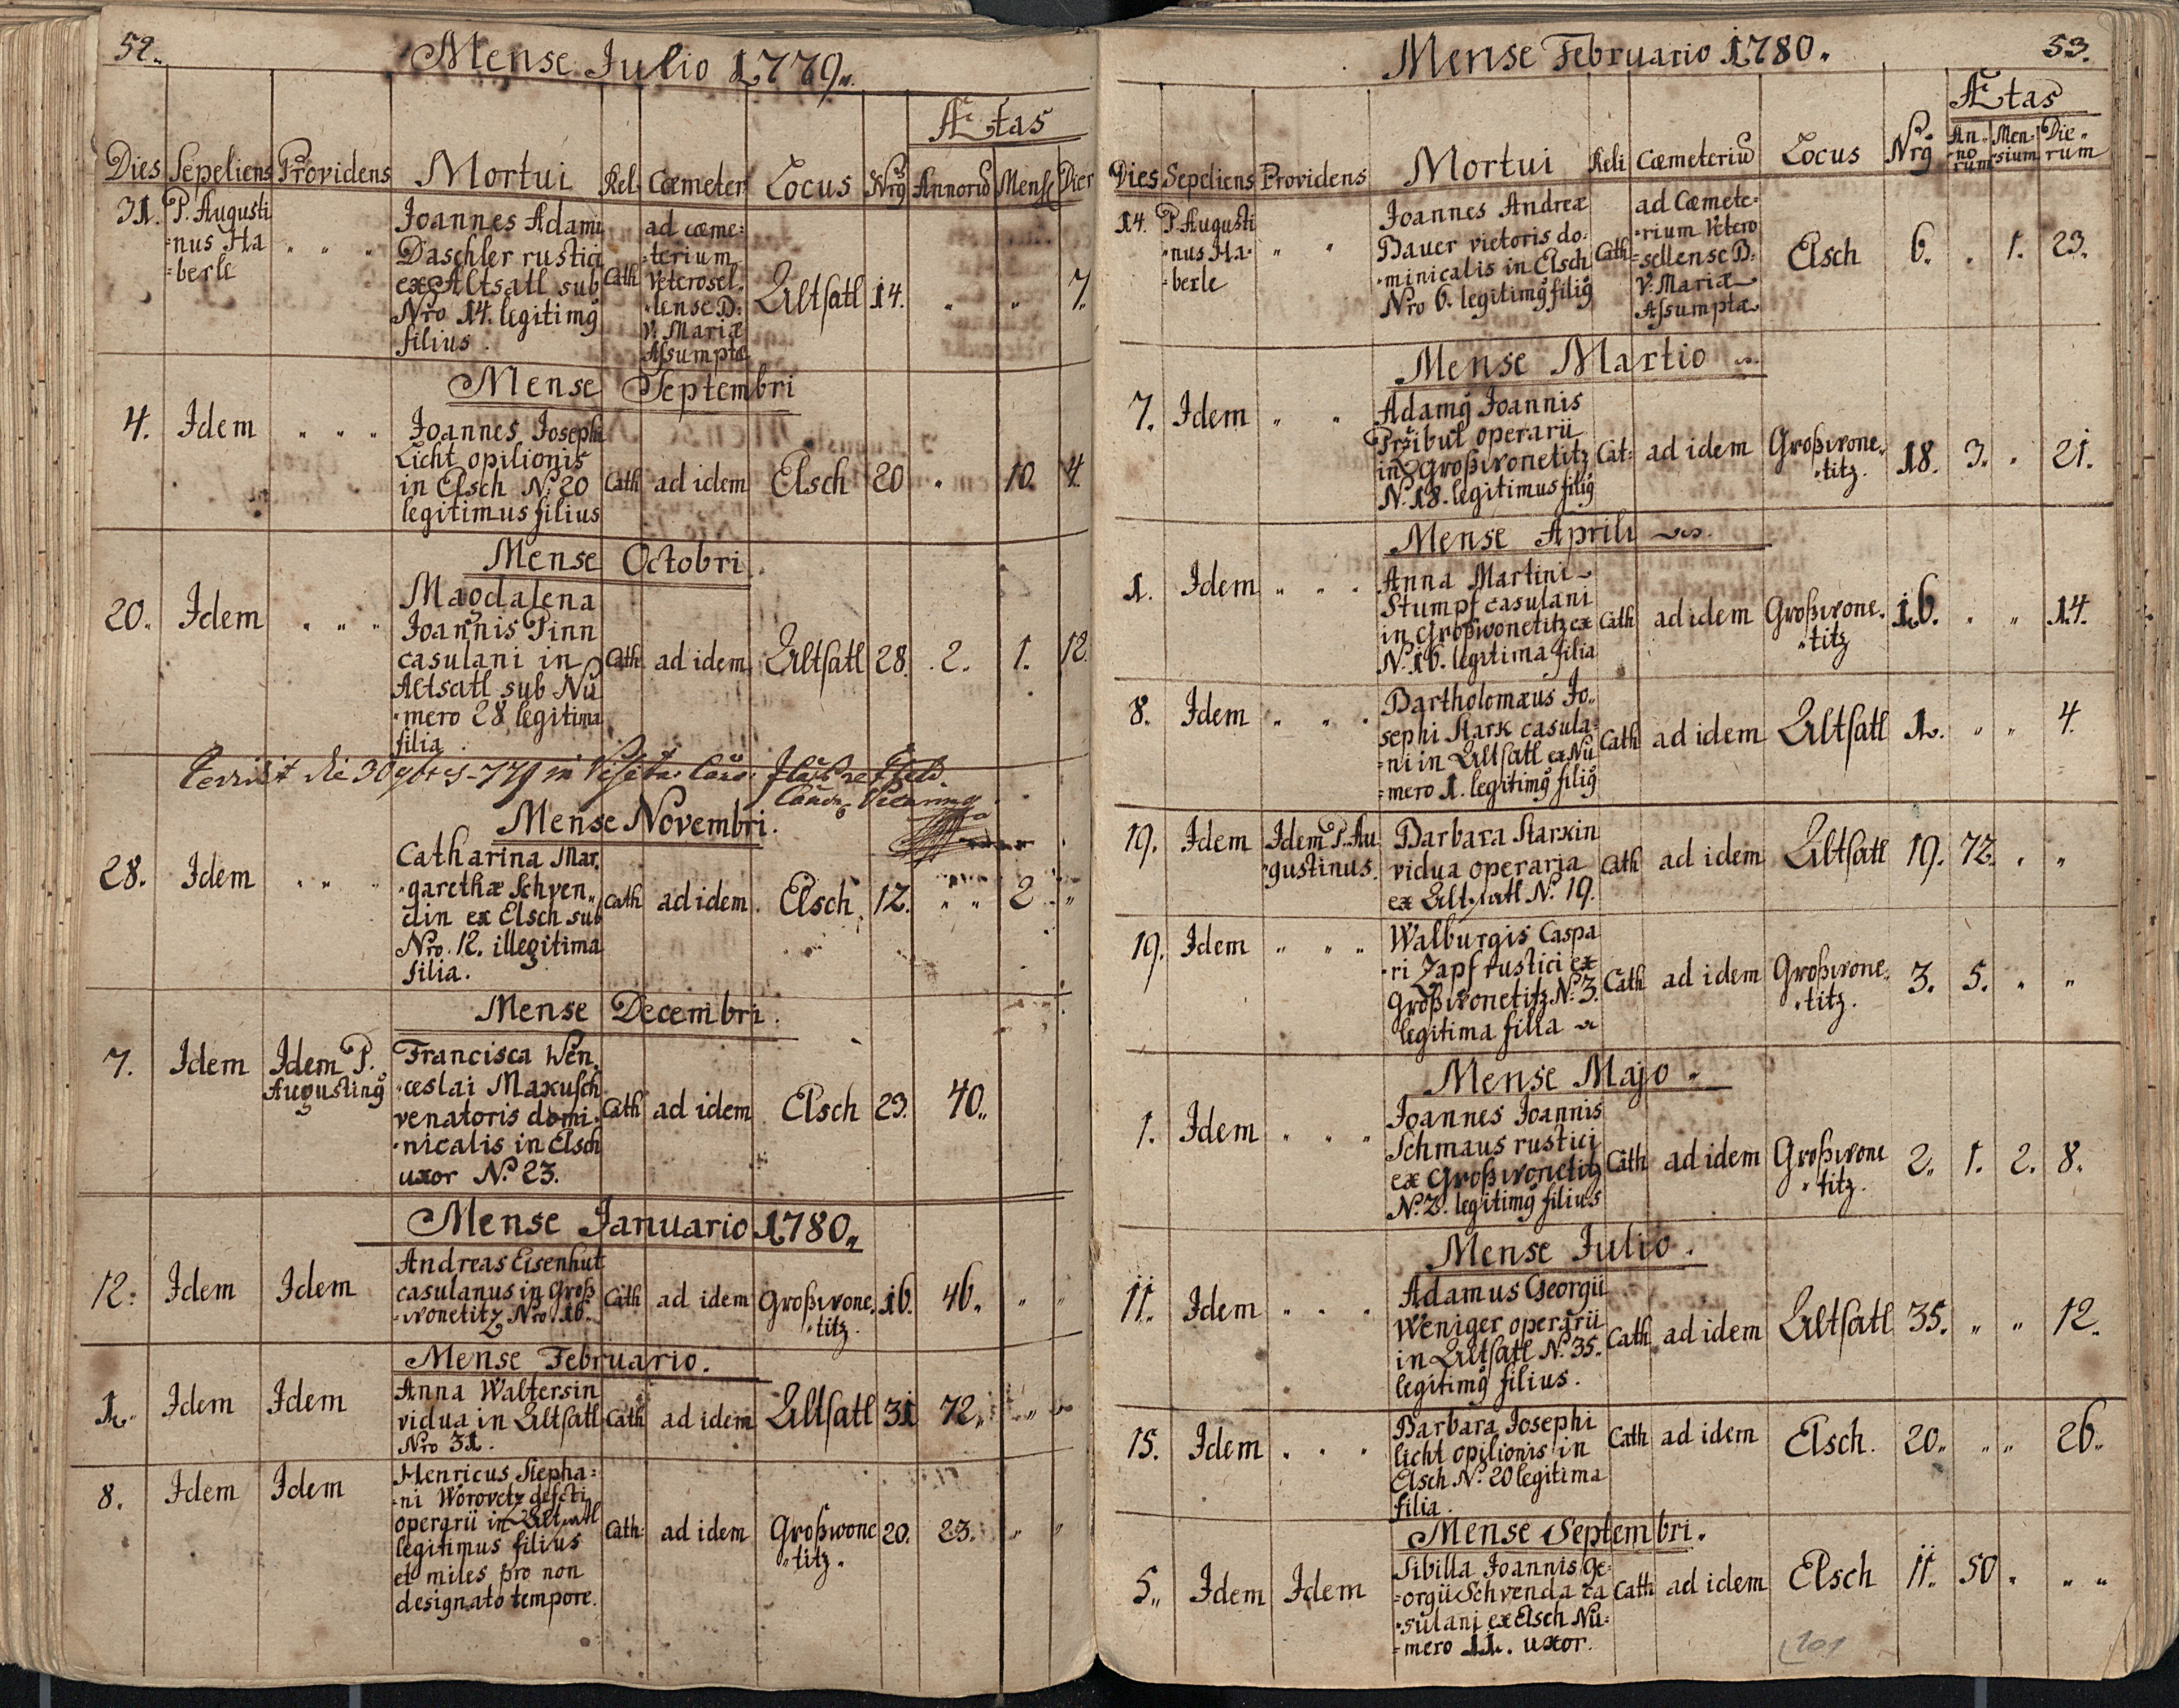 52.
Mense Julio 1779.
Ætas
Dies Sepeliens Providens Mortui Rel. Cœmeter Locus Nrg Annoru Mens Dier
31. P. Augusti
=nus Ha
=berle
Joannes Adami
Daschler rustici
ex Altsatl sub
Nro 14. legitimg
filius.
Cath
ad cœme=
=terium
Veterosel.
=lense B:
V. Mariæ
Assumptæ
Altsatl 14. " " 7.
Mense Septembri
4. Idem " " "
Joannes Josephi
Licht opilionis
in Elsch N. 20
legitimus filius
Cath ad idem Elsch 20 " 10. 4.
Mense Octobri.
20. Idem " " "
Magdalena
Joannis Pinn
casulani in
Altsatl sub Nu
=mero 28 legitima
filia.
Cath ad idem Altsatl 28. 2. 1. 12.
die 30
Mense Novembri.
28. Idem " " "
Catharina Mar.
=garethæ Schven„
din ex Elsch sub
Nro. 12. illegitima
filia.
Cath ad idem. Elsch. 12. " " 2 "
Mense Decembri.
7. Idem Idem P.
Augusting
Francisca Wen.
=ceslai Maxusch
venatoris domi.
=nicalis in Elsch
uxor N. 23.
Cath ad idem Elsch 23. 40„
Mense Januario 1780„
12. Idem Idem
Andreas Eisenhut
casulanus in Groß
=wonetitz Nro. 16.
Cath ad idem Großwone.
=titz.
16. 46. " "
Mense Februario.
1. Idem Idem
Anna Waltersin
vidua in Altsatl
Nro 31.
Cath ad idem Altsatl 31 72„ " "
8. Idem Idem
Henricus Stepha=
=ni Worovetz defcti
operarii in Altsatl
legitimus filius
et miles pro non
designato tempore.
Cath: ad idem Großwone
=titz.
20. 23. " "
Mense Februario 1780. 53.
Ætas
Dies Sepeliens Providens Mortui Reli Cœmeteriu Locus Nrg An=
=no
rum Men=
=sium Die„
rum
14. P. Augusti
=nus Ha=
=berle
" "
Joannes Andreæ
Bauer vietoris do=
=minicalis in Elsch
Nro 6. legitimg filig
Cath
ad Cœmete=
=rium Vetero
=sellense B.
V. Mariæ
Assumptæ
Elsch 6. . 1. 23.
Mense Martio
7. Idem " "
Adamg Joannis
Przibul operarii
in Großwonetitz
N. 18. legitimus filig
Cat= ad idem Großwone„
=titz.
18. 3. " 21.
Mense Aprili
1. Idem " " "
Anna Martini
Stumpf casulani
in Großwonetitz ex
N. 16. legitima filia
Cath ad idem Großwone.
=titz
16. " " 14.
8. Idem " " "
Bartholomæus Jo„
sephi Stark casula=
=ni in Altsatl ex Nu
=mero 1. legitimg filig
Cath ad idem Altsatl 1. " " 4.
19. Idem Idem P. Au
=gustinus.
Barbara Starxin
vidua operaria
ex Altsatl N. 19.
Cath ad idem Altsatl 19. 72. " "
19. Idem " " "
Walburgis Caspa
=ri Zapf rustici ex
Großwonetitz N. 3.
legitima filia
Cath ad idem Großwone„
=titz.
3. 5. " "
Mense Majo
1. Idem " " "
Joannes Joannis
Schmaus rustici
ex Großwonetitz
N. 2. legitimg filius
Cath ad idem Großwone
=titz.
2. 1. 2. 8.
Mense Julio.
11. Idem " " "
Adamus Georgii
Weniger operarii
in Altsatl N. 35.
legitimg filius.
Cath ad idem Altsatl 35. " " 12.
15. Idem " " "
Barbara Josephi
licht opilionis in
Elsch N. 20 legitima
filia.
Cath ad idem Elsch. 20„ " " 26.
Mense Septembri.
5. Idem Idem
Sibilla Joannis Ge=
=orgii Schvenda ca
=sulani ex Elsch Nu=
=mero 11. uxor.
Cath ad idem Elsch 11. 50. " "
201